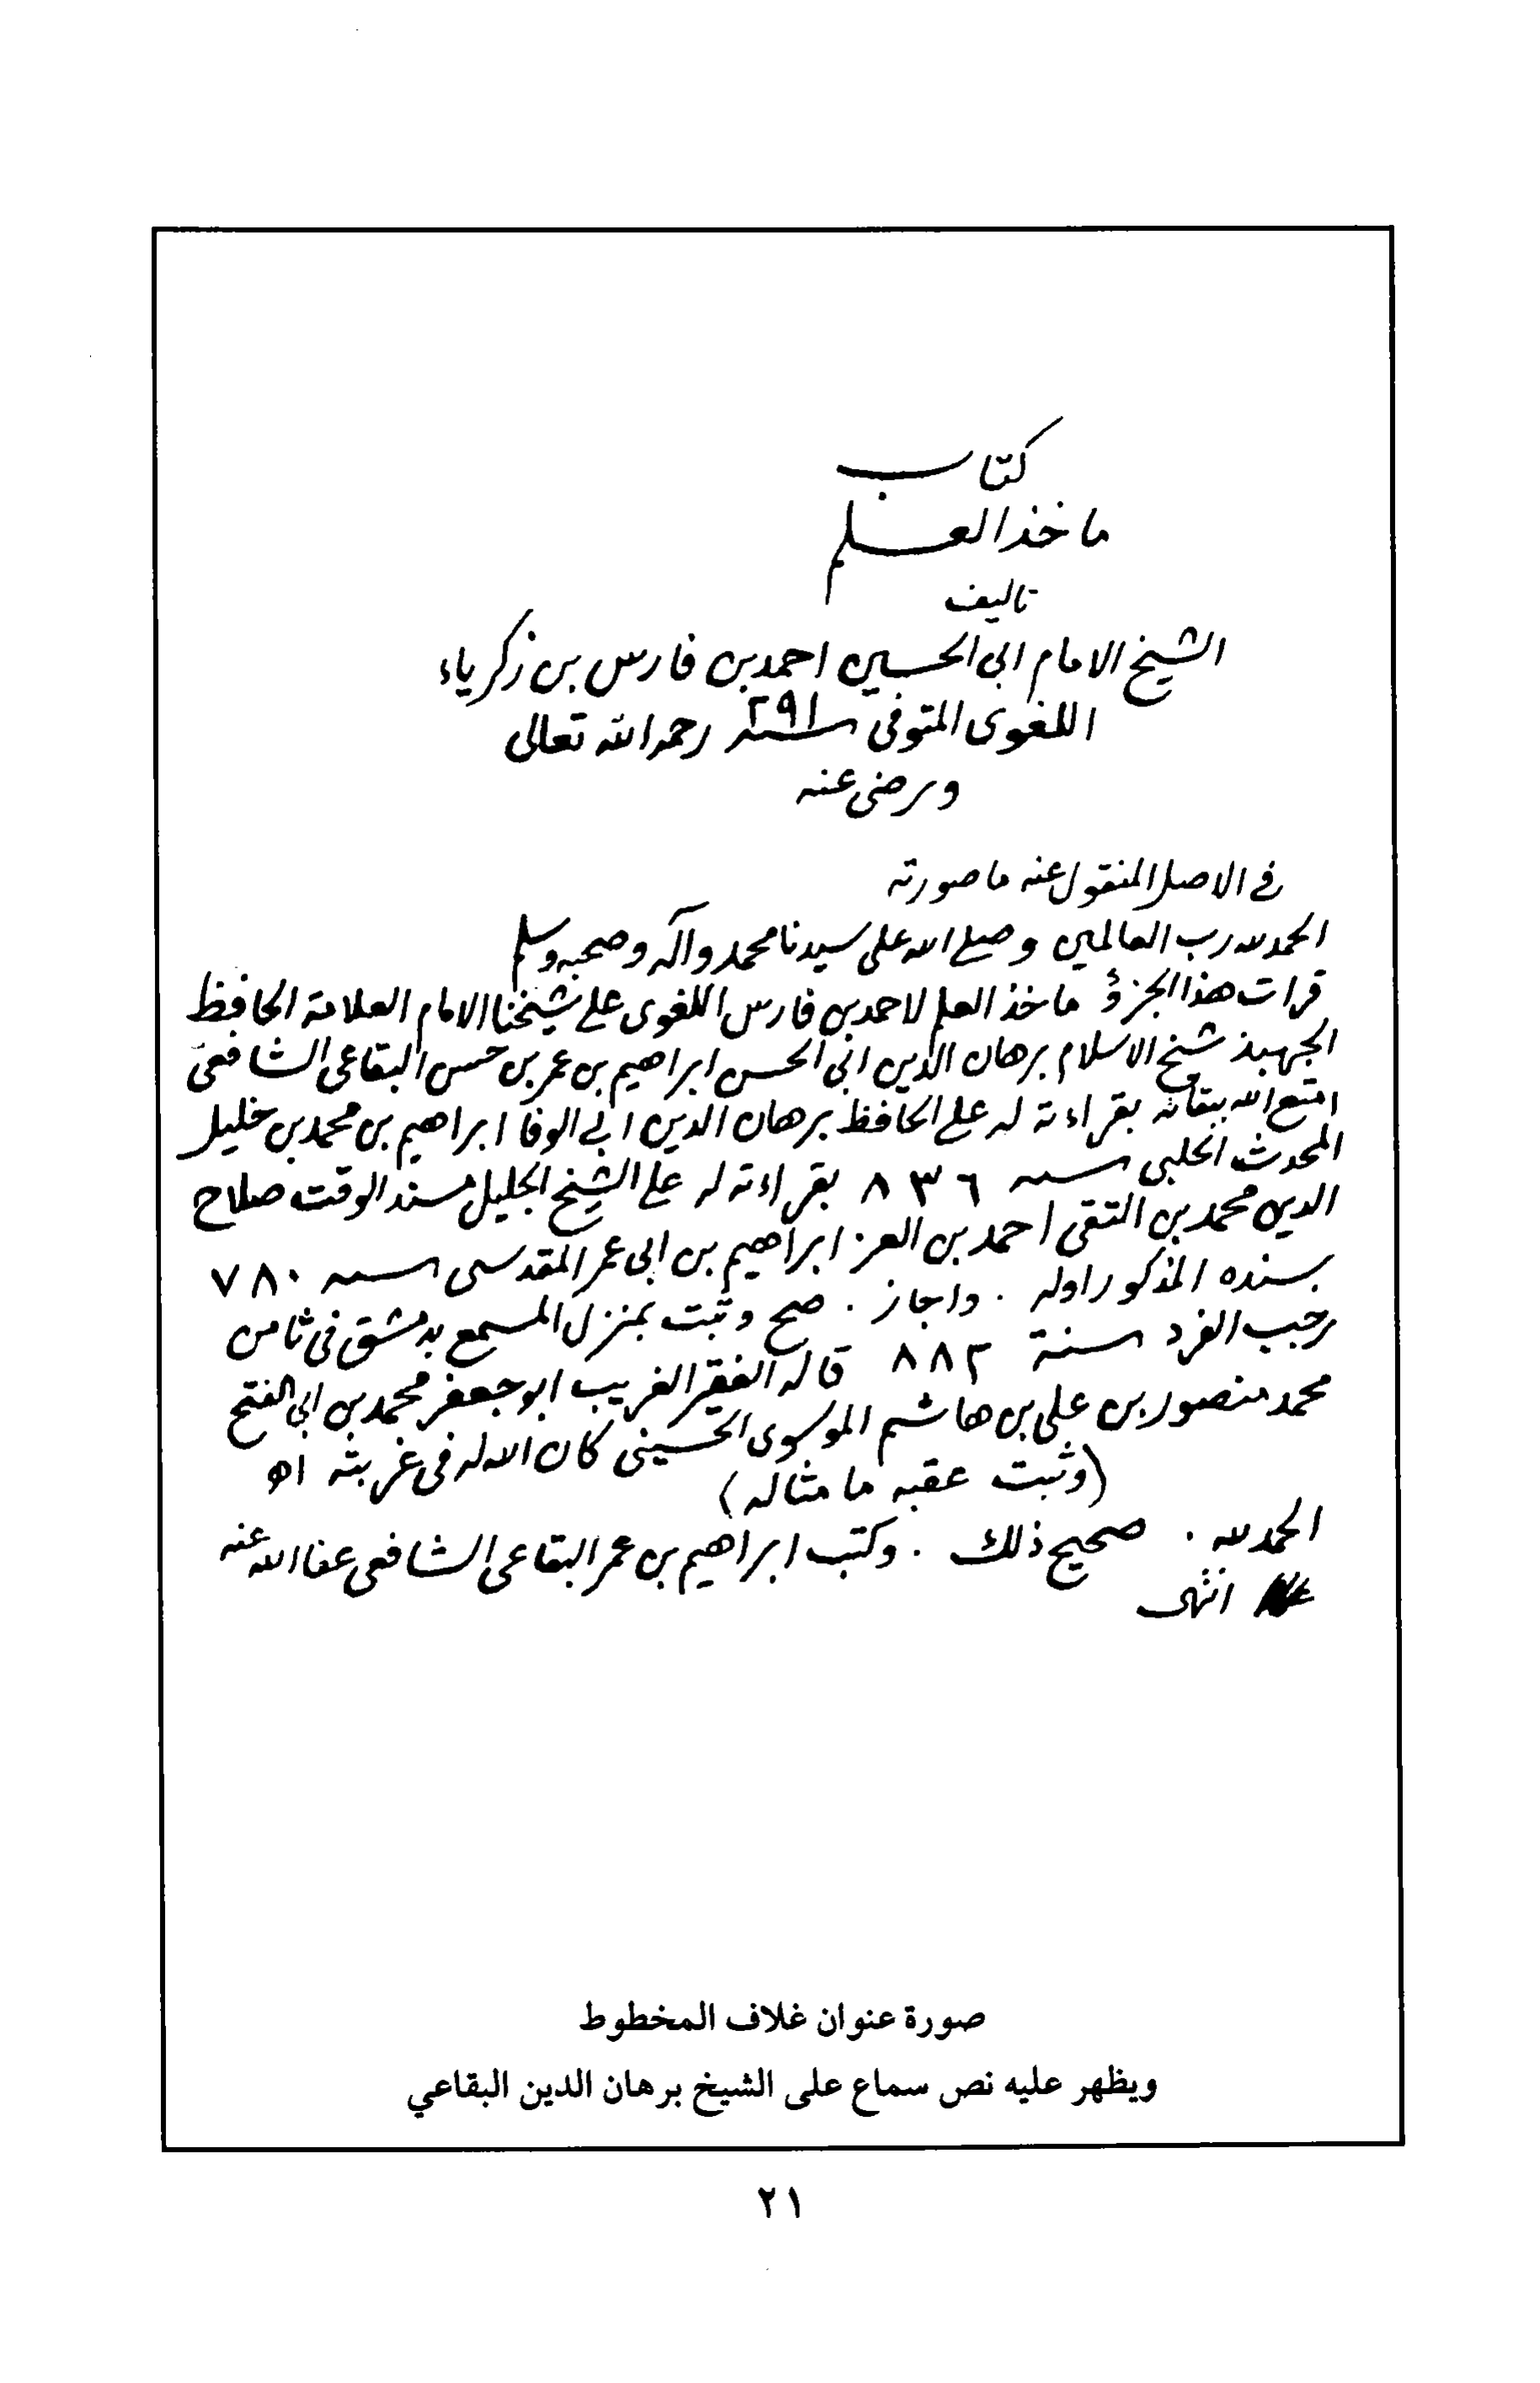 كتاب
ماخذ العلم
تاليف
الشيخ الامام ابى الحسين احمد بن فارس بن زكرياء
اللغوى المتوفى سنة ٢٩١ رحمه الله تعالى
ورضى عنه
فى الاصل المنقول عنه ما صورته
الحمد لله رب العالمين وصلى الله على سيدنا محمد وآله وصحبه وسلم
قرات هذا الجزؤ ماخذ العلم لاحمد بن فارس اللغوى على شيخنا الامام العلامة الحافظ
الجهبذ شيخ الاسلام برهان الدين ابى الحسن ابراهيم بن عمر بن حسن البقاعى الشافعى
امتع الله ببقائه بقراءته له على الحافظ برهان الدين ابى الوفا ابراهيم بن محمد بن خليل
المحدث الحلبى سنه ٨٣٦ بقراءته له على الشيخ الجليل مسند الوقت صلاح
الدين محمد بن التقى احمد بن العز ابراهيم بن ابى عمر المقدسى سنه ٧٨٠
بسنده المذكور اوله . واجاز . صح وثبت بمنزل المسمع بدمشق فى ثامن
رجب الفرد سنة ٨٨٢ قاله الفقير الغريب ابو جعفر محمد بن ابى الفتح
محمد منصور بن على بن هاشم الموسوى الحسينى كان الله له فى غربته اه
(وثبت عقبه ما مثاله)
الحمد لله . صحيح ذلك . وكتب ابراهيم بن عمر البقاعى الشافعى عفا الله عنه
انتهى
صورة عنوان غلاف المخطوط
ويظهر عليه نص سماع على الشيخ برهان الدين البقاعي
٢١